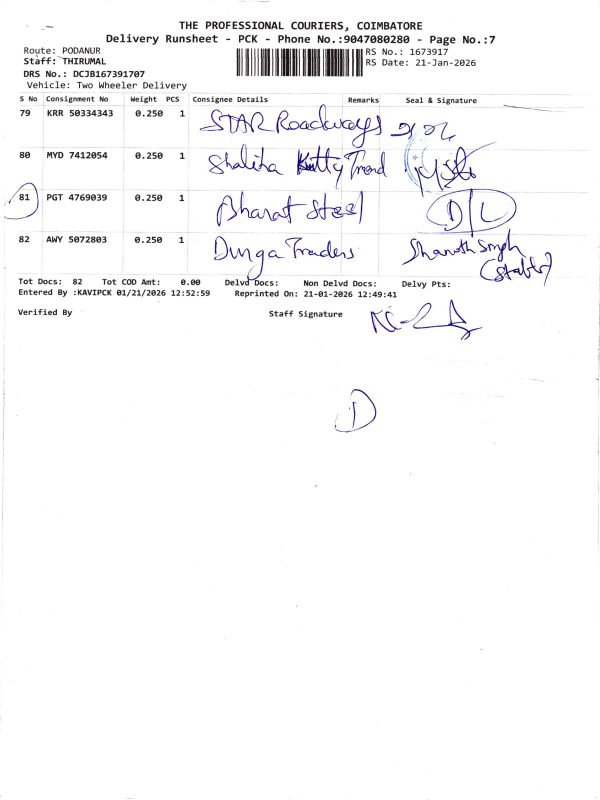 THE PROFESSIONAL COURIERS, COIMBATORE
Delivery Runsheet - PCK - Phone No.:9047080280 - Page No.:7
Route: PODANUR RS No.: 1673917
Staff: THIRUMAL RS Date: 21-Jan-2026
DRS No.: DCJB167391707
Vehicle: Two Wheeler Delivery
S No Consignment No Weight PCS Consignee Details Remarks Seal & Signature
79 KRR 50334343 0.250 1 STAR Roadways
80 MYD 7412054 0.250 1 Shaliha Kutty Trend
81 PGT 4769039 0.250 1 Bharat Steel D/L
82 AWY 5072803 0.250 1 Durga Traders Sharath Singh
Tot Docs: 82 Tot COD Amt: 0.00 Delvd Docs: Non Delvd Docs: Delvy Pts:
Entered By :KAVIPCK 01/21/2026 12:52:59 Reprinted On: 21-01-2026 12:49:41
Verified By Staff Signature
D